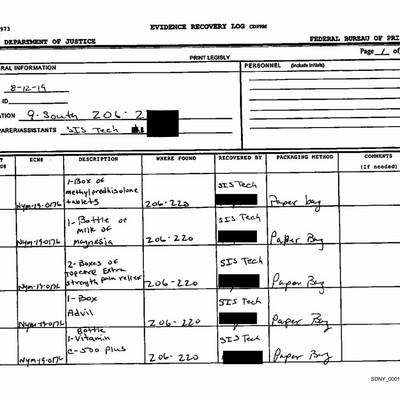 973
EVIDENCE RECOVERY LOG CDFRM
DEPARTMENT OF JUSTICE
FEDERAL BUREAU OF PRI
Page 1 of
PRINT LEGIBLY
ERAL INFORMATION
PERSONNEL (include initials)
8-12-19
ID
ATION 9-South 206-2
PARER/ASSISTANTS SIS Tech
ECN# DESCRIPTION WHERE FOUND RECOVERED BY PACKAGING METHOD COMMENTS
(If needed)
1-Box of
methylprednisolone
tablets
NYM-19-0176 206-220 SIS Tech Paper bag
1-Bottle of
Milk of
Magnesia
NYM-19-0176 206-220 SIS Tech Paper Bag
2-Boxes of
Topcare Extra
strength pain relief
NYM-19-0176 206-220 SIS Tech Paper Bag
1-Box
Advil
NYM-19-0176 206-220 SIS Tech Paper Bag
Bottle
1-Vitamin
C-500 plus
NYM-19-0176 206-220 SIS Tech Paper Bag
SDNY_0001